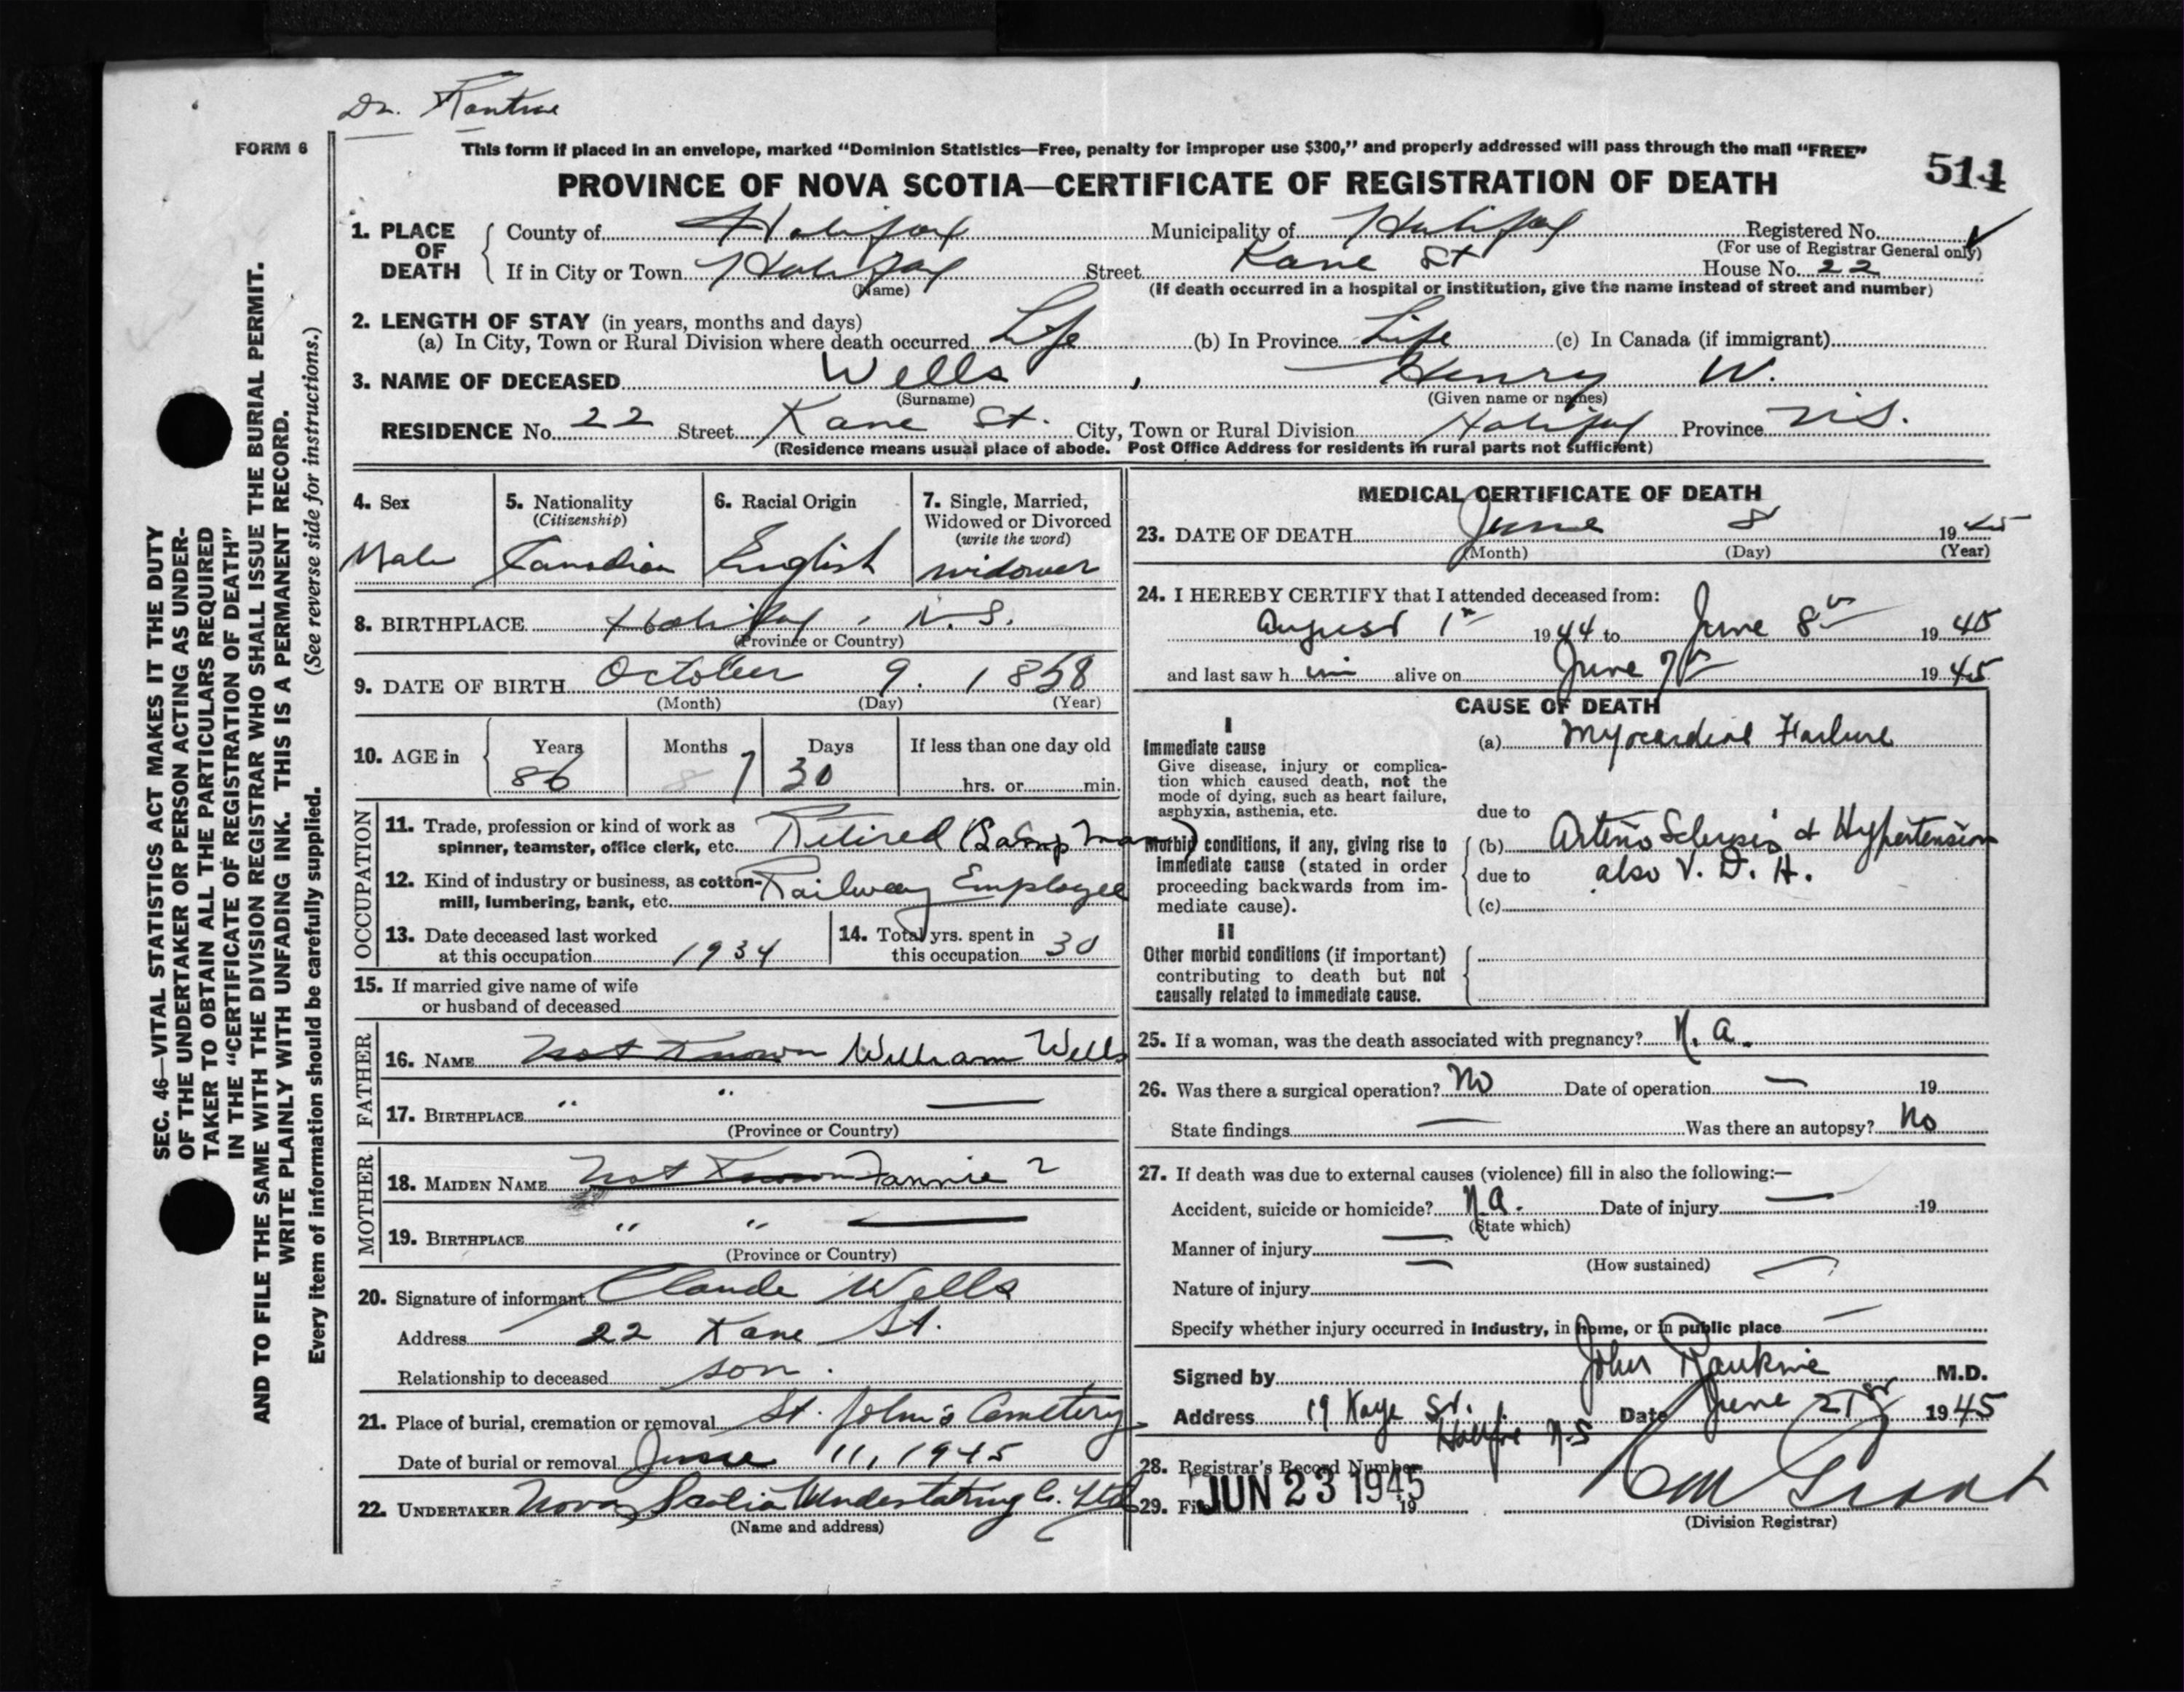 Dr. Rankine
FORM 6
This form if placed in an envelope, marked "Dominion Statistics—Free, penalty for improper use $300," and properly addressed will pass through the mail "FREE"
514
PROVINCE OF NOVA SCOTIA—CERTIFICATE OF REGISTRATION OF DEATH
1. PLACE OF DEATH
County of Halifax Municipality of Halifax Registered No. ✓
(For use of Registrar General only)
If in City or Town Halifax Street Kane St House No. 22
(Name) (If death occurred in a hospital or institution, give the name instead of street and number)
2. LENGTH OF STAY (in years, months and days)
(a) In City, Town or Rural Division where death occurred Life (b) In Province Life (c) In Canada (if immigrant)
3. NAME OF DECEASED Wells , Henry W.
(Surname) (Given name or names)
RESIDENCE No. 22 Street Kane St. City, Town or Rural Division Halifax Province N.S.
(Residence means usual place of abode. Post Office Address for residents in rural parts not sufficient)
4. Sex
Male
5. Nationality
(Citizenship)
Canadian
6. Racial Origin
English
7. Single, Married,
Widowed or Divorced
(write the word)
widower
8. BIRTHPLACE Halifax, N.S.
(Province or Country)
9. DATE OF BIRTH October 9. 1858
(Month) (Day) (Year)
10. AGE in
Years Months Days If less than one day old
86 8 7 30 hrs. or min.
OCCUPATION
11. Trade, profession or kind of work as
spinner, teamster, office clerk, etc. Retired
12. Kind of industry or business, as cotton-
mill, lumbering, bank, etc. Railway Employee
13. Date deceased last worked
at this occupation 1934
14. Total yrs. spent in
this occupation 30
15. If married give name of wife
or husband of deceased
FATHER
16. NAME Not Known William Wells
17. BIRTHPLACE " " —
(Province or Country)
MOTHER
18. MAIDEN NAME Not Known Fannie ?
19. BIRTHPLACE " " —
(Province or Country)
20. Signature of informant Claude Wells
Address 22 Kane St.
Relationship to deceased son.
21. Place of burial, cremation or removal St. John's Cemetery
Date of burial or removal June 11, 1945
22. UNDERTAKER Nova Scotia Undertaking Co. Ltd
(Name and address)
MEDICAL CERTIFICATE OF DEATH
23. DATE OF DEATH June 8 1945
(Month) (Day) (Year)
24. I HEREBY CERTIFY that I attended deceased from:
August 1st 1944 to June 8th 1945
and last saw him alive on June 7th 1945
CAUSE OF DEATH
I
Immediate cause
Give disease, injury or complica-
tion which caused death, not the
mode of dying, such as heart failure,
asphyxia, asthenia, etc.
(a) Myocardial Failure
due to
Morbid conditions, if any, giving rise to
immediate cause (stated in order
proceeding backwards from im-
mediate cause).
(b) Arterio Sclerosis & Hypertension
due to also V. D. H.
(c)
II
Other morbid conditions (if important)
contributing to death but not
causally related to immediate cause.
25. If a woman, was the death associated with pregnancy? N. A.
26. Was there a surgical operation? No Date of operation — 19
State findings — Was there an autopsy? No
27. If death was due to external causes (violence) fill in also the following:—
Accident, suicide or homicide? N.A. Date of injury — 19
(State which)
Manner of injury —
(How sustained)
Nature of injury —
Specify whether injury occurred in industry, in home, or in public place —
Signed by John Rankine M.D.
Address 19 Kaye St. Date June 21st 1945
Halifax N.S
28. Registrar's Record Number
29. Filed JUN 23 1945 19
(Division Registrar)
SEC. 46—VITAL STATISTICS ACT MAKES IT THE DUTY
OF THE UNDERTAKER OR PERSON ACTING AS UNDER-
TAKER TO OBTAIN ALL THE PARTICULARS REQUIRED
IN THE "CERTIFICATE OF REGISTRATION OF DEATH"
AND TO FILE THE SAME WITH THE DIVISION REGISTRAR WHO SHALL ISSUE THE BURIAL PERMIT.
WRITE PLAINLY WITH UNFADING INK. THIS IS A PERMANENT RECORD.
Every item of information should be carefully supplied. (See reverse side for instructions.)